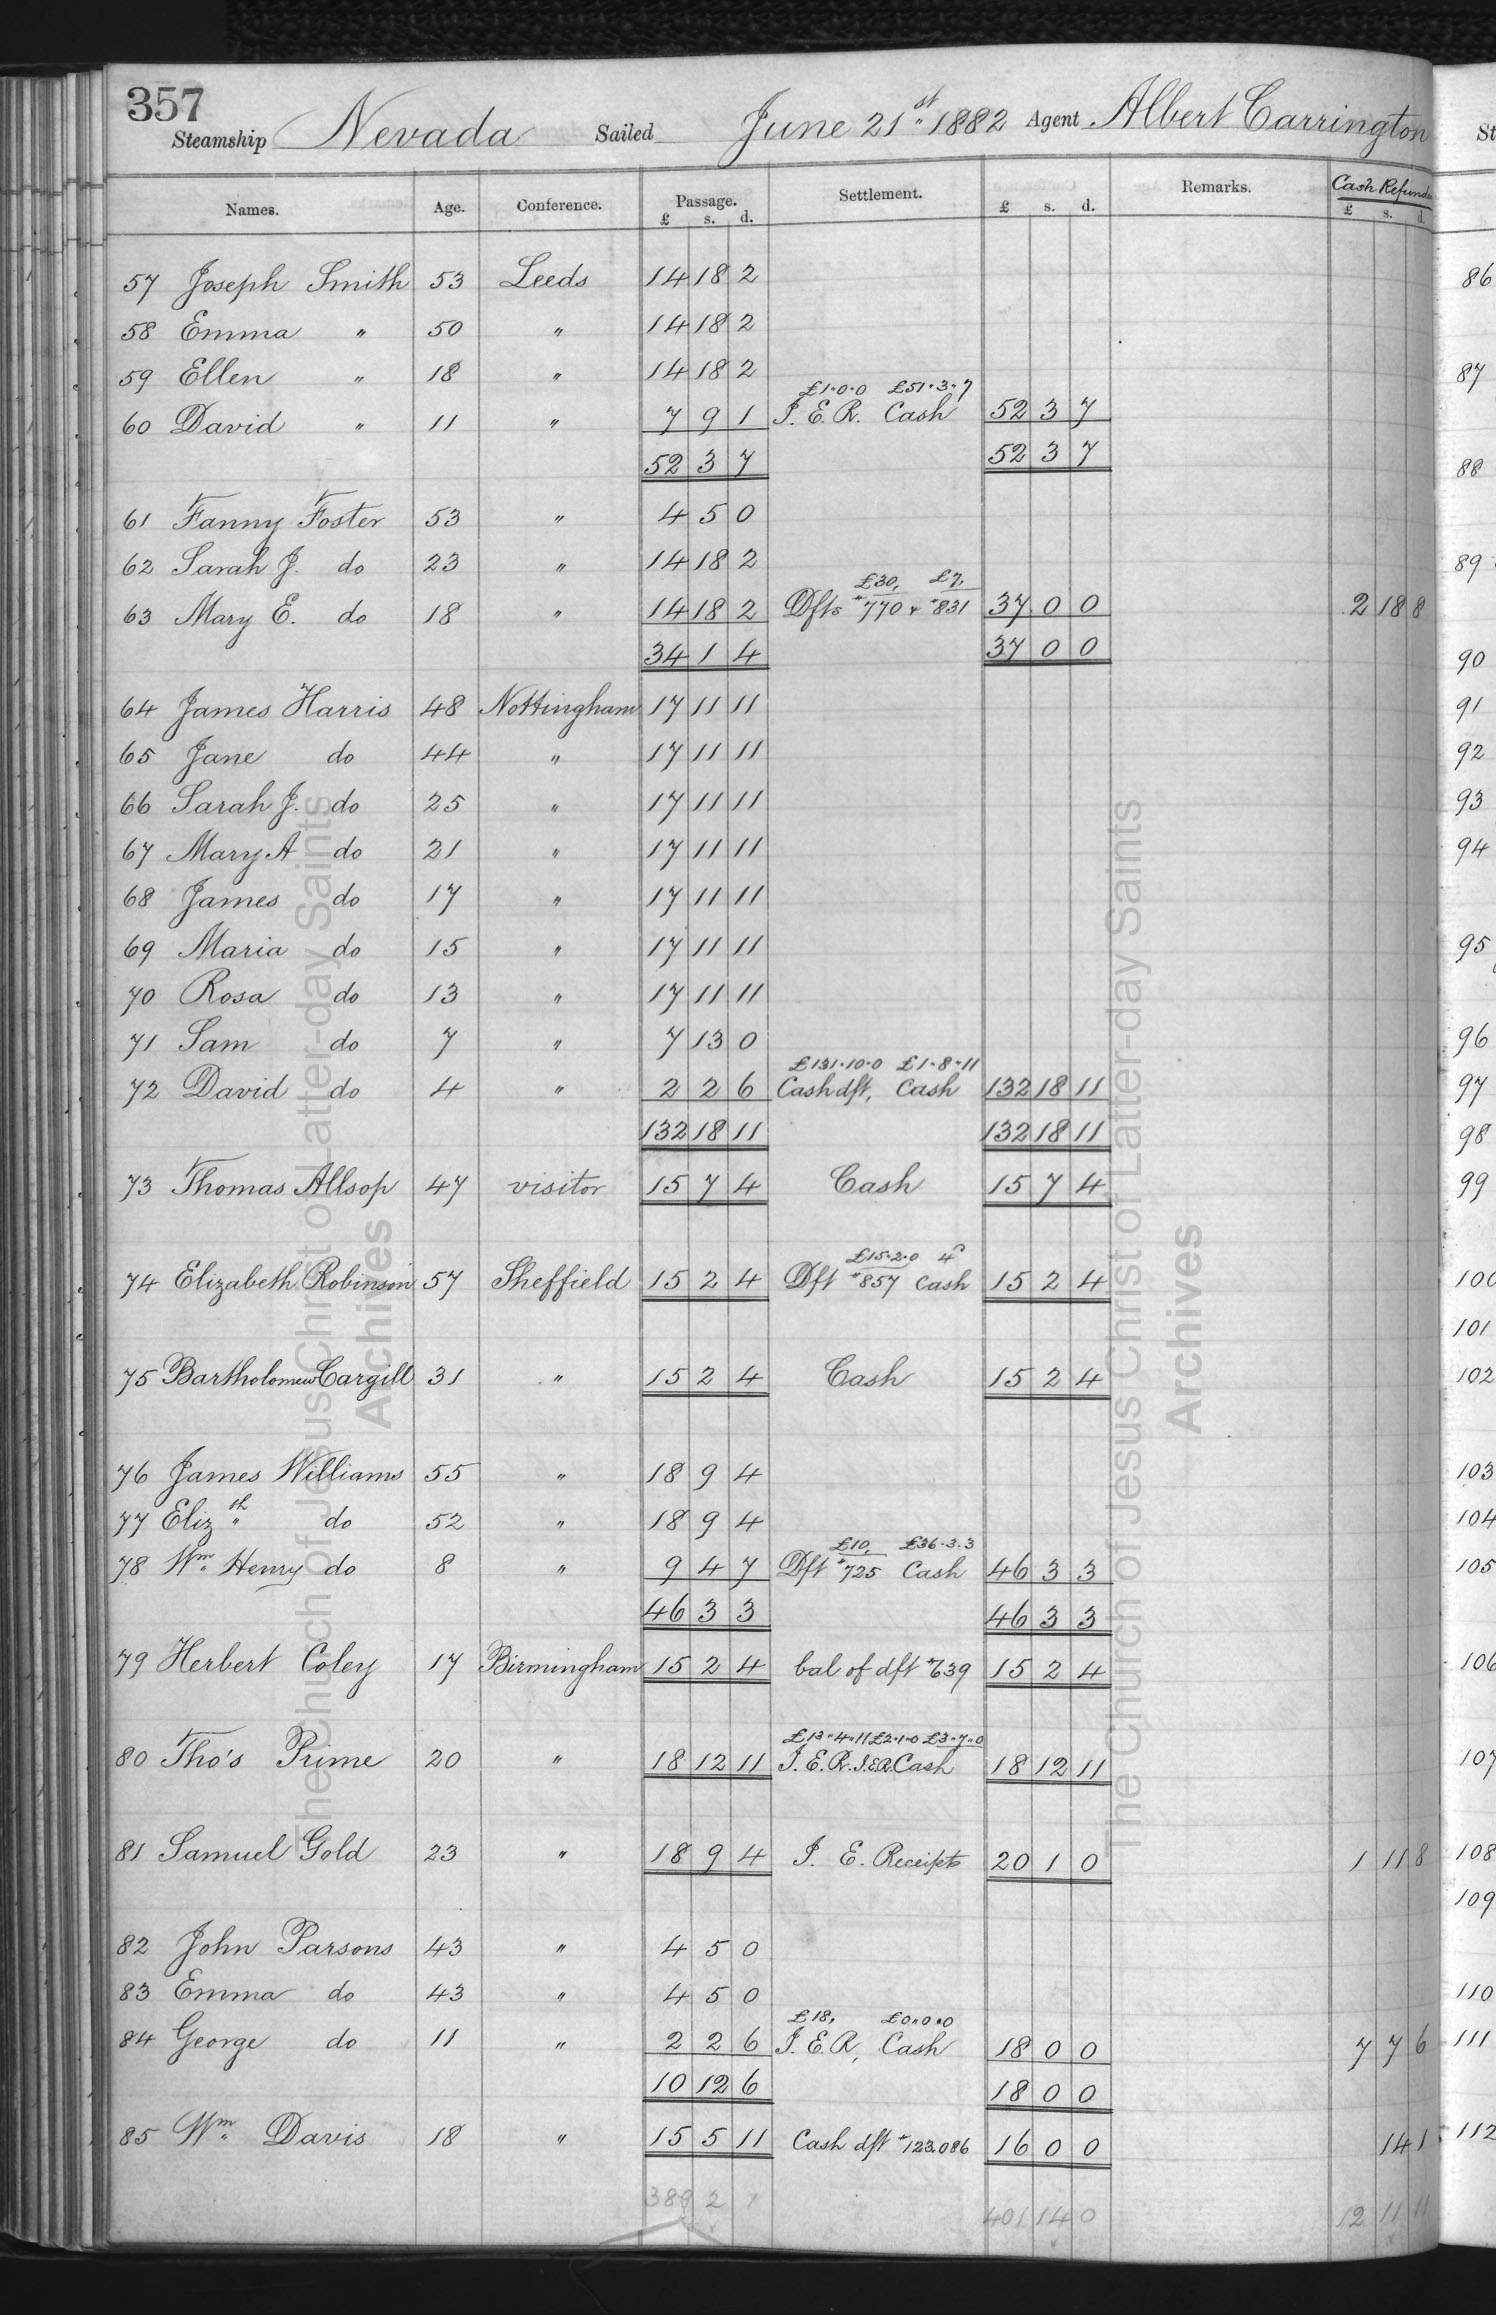 357
Steamship Nevada Sailed June 21st 1882 Agent Albert Carrington
Names. Age. Conference. Passage. £ s. d. Settlement. £ s. d. Remarks. Cash Refunde £ s. d.
57 Joseph Smith 53 Leeds 14 18 2
58 Emma " 50 " 14 18 2
59 Ellen " 18 " 14 18 2
£1.0.0 £51.3.7
60 David " 11 " 7 9 1 I. E. R. Cash 52 3 7
52 3 7 52 3 7
61 Fanny Foster 53 " 4 5 0
62 Sarah J. do 23 " 14 18 2
£30, £7,
63 Mary E. do 18 " 14 18 2 Dfts #770 & #831 37 0 0 2 18 8
34 1 4 37 0 0
64 James Harris 48 Nottingham 17 11 11
65 Jane do 44 " 17 11 11
66 Sarah J. do 25 " 17 11 11
67 Mary A do 21 " 17 11 11
68 James do 17 " 17 11 11
69 Maria do 15 " 17 11 11
70 Rosa do 13 " 17 11 11
71 Sam do 7 " 7 13 0
£131.10.0 £1.8.11
72 David do 4 " 2 2 6 Cash dft, Cash 132 18 11
132 18 11 132 18 11
73 Thomas Allsop 47 visitor 15 7 4 Cash 15 7 4
£15.2.0 4d
74 Elizabeth Robinson 57 Sheffield 15 2 4 Dft #857 Cash 15 2 4
75 Bartholomew Cargill 31 " 15 2 4 Cash 15 2 4
76 James Williams 55 " 18 9 4
77 Elizth do 52 " 18 9 4
£10, £36.3.3
78 Wm Henry do 8 " 9 4 7 Dft #725 Cash 46 3 3
46 3 3 46 3 3
79 Herbert Coley 17 Birmingham 15 2 4 bal of dft #639 15 2 4
£13.4.11 £2.1.0 £3.7.0
80 Tho's Prime 20 " 18 12 11 I. E. R. I.E.R. Cash 18 12 11
81 Samuel Gold 23 " 18 9 4 I. E. Receipts 20 1 0 1 11 8
82 John Parsons 43 " 4 5 0
83 Emma do 43 " 4 5 0
£18, £0.0.0
84 George do 11 " 2 2 6 I. E. R, Cash 18 0 0 7 7 6
10 12 6 18 0 0
85 Wm Davis 18 " 15 5 11 Cash dft #123.086 16 0 0 14 1
389 2 1 401 14 0 12 11 11
The Church of Jesus Christ of Latter-day Saints
Archives
The Church of Jesus Christ of Latter-day Saints
Archives
St
86
87
88
89
90
91
92
93
94
95
96
97
98
99
100
101
102
103
104
105
106
107
108
109
110
111
112